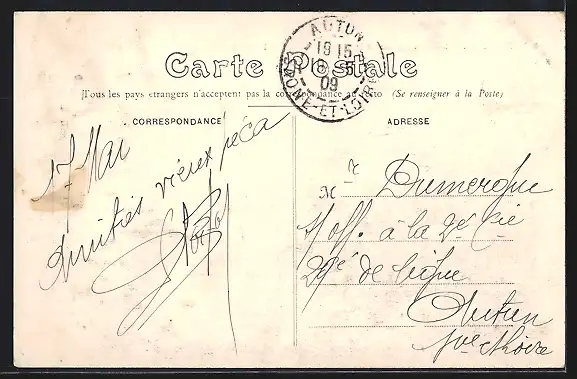 Carte Postale
Tous les pays étrangers n'acceptent pas la correspondance au recto (Se renseigner à la Poste)
AUTUN
19 15
18 5
09
SAONE-ET-LOIRE
CORRESPONDANCE
17 Mai
Amitiés vieux
ADRESSE
Mr Dumergue
s/off. à la 2e Cie
29e de ligne
Autun